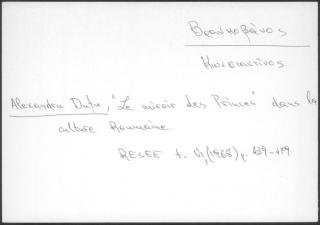 Βρανκοβάνος
Κωνσταντίνος
Alexandru Duțu, "Le miroir des Princes" dans la
culture Roumaine.
RESEE t. VI, (1968) p. 439-479